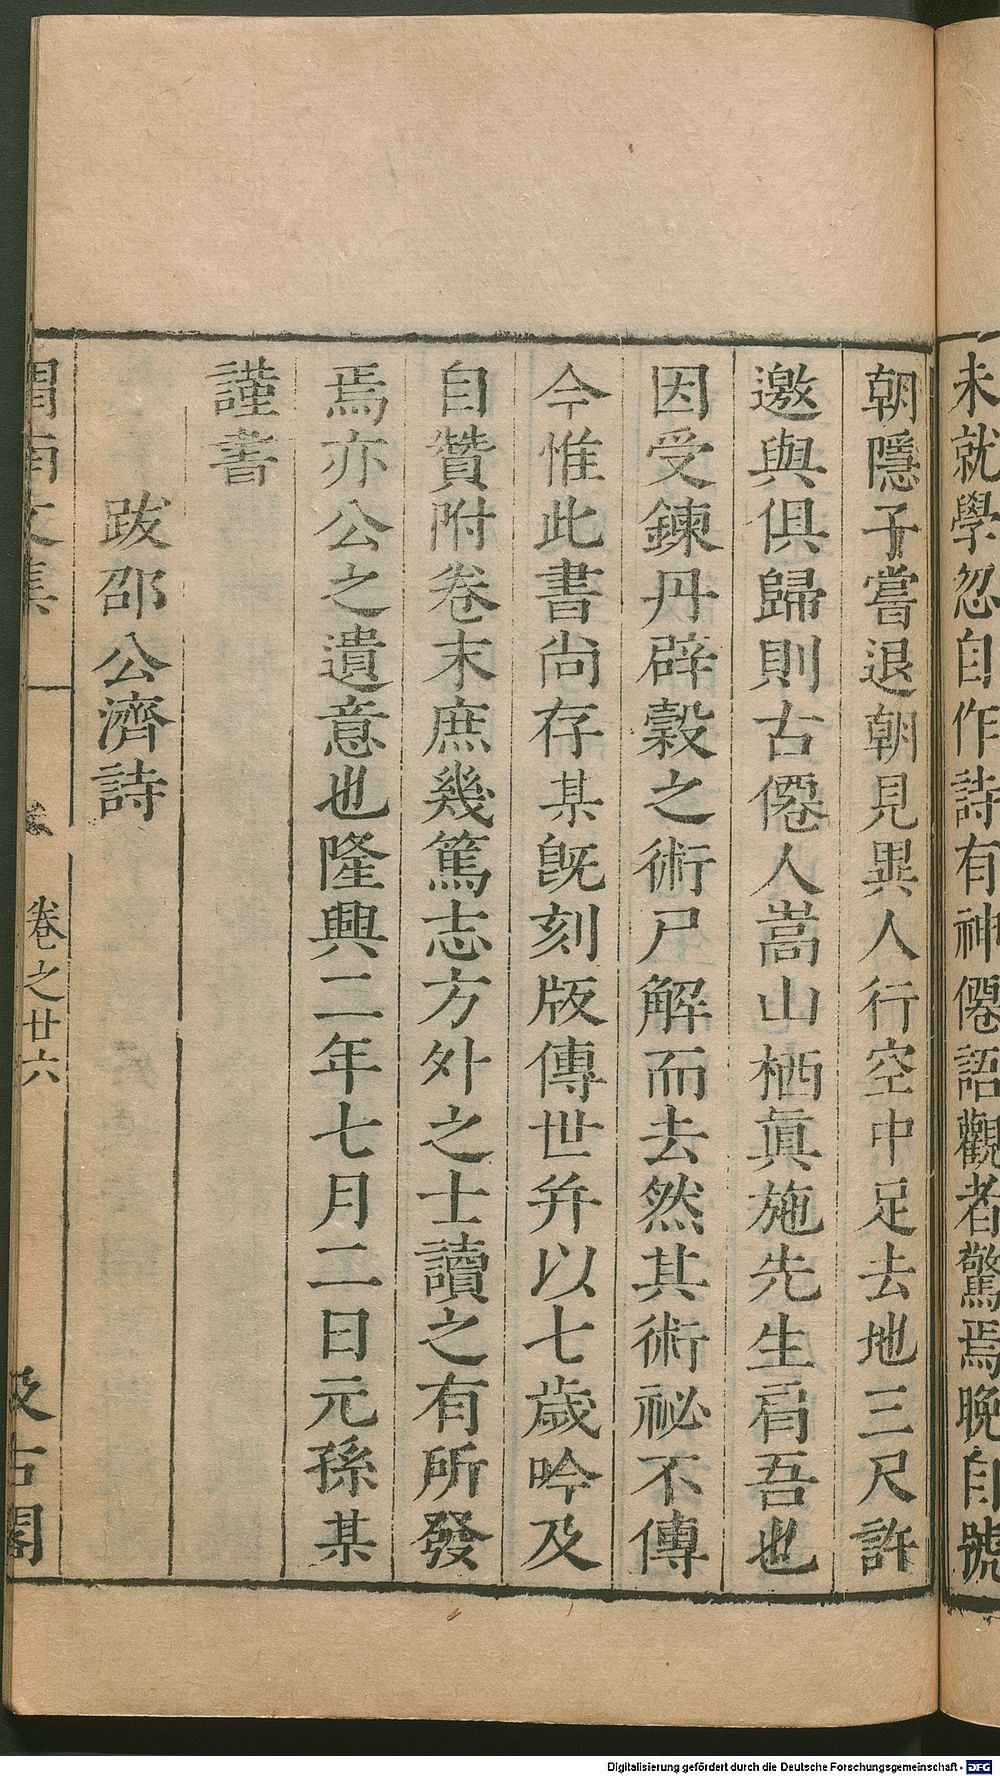 未就學忽自作詩有神僊語觀者驚焉晚自號
朝隱子嘗退朝見異人行空中足去地三尺許
邀與俱歸則古僊人嵩山栖眞施先生肩吾也
因受鍊丹辟穀之術尸解而去然其術祕不傳
今惟此書尚存某旣刻版傳世幷以七歲吟及
自贊附卷末庶幾篤志方外之士讀之有所發
焉亦公之遺意也隆興二年七月二日元孫某
謹書
跋邵公濟詩
渭南文集
卷之廿六
汲古閣
Digitalisierung gefördert durch die Deutsche Forschungsgemeinschaft - DFG